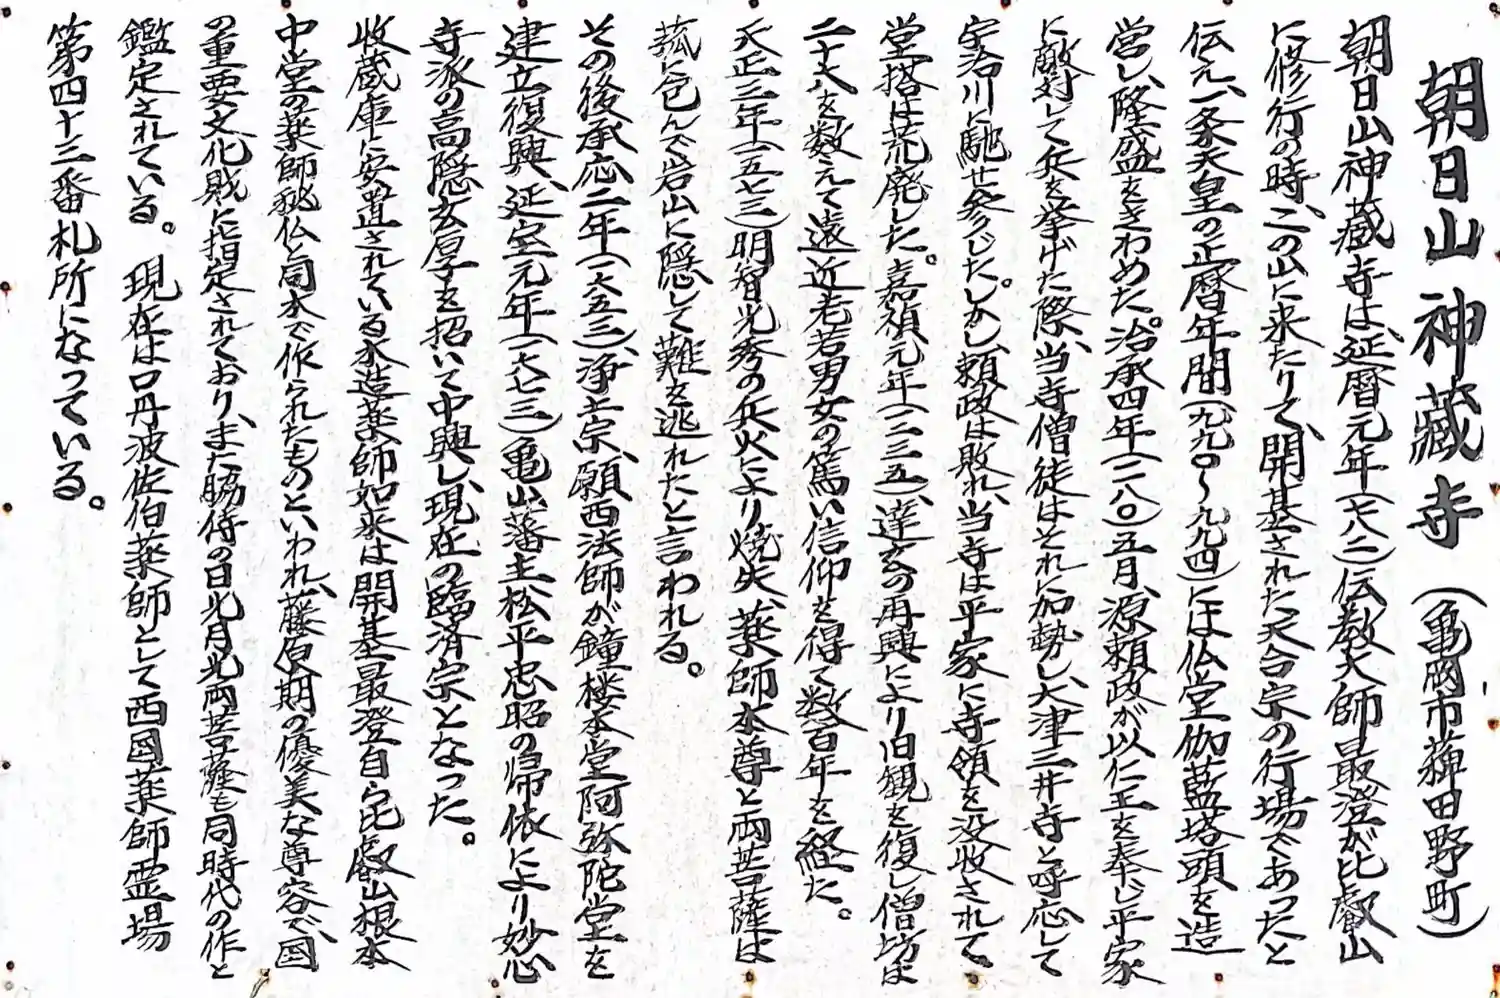 朝日山神蔵寺（亀岡市薭田野町）
朝日山神蔵寺は、延暦元年（七八二）伝教大師最澄が比叡山
に修行の時、この山に来たりて、開基された天台宗の行場であったと
伝え、一条天皇の正暦年間（九九〇～九九四）には仏堂伽藍塔頭を造
営し、隆盛をきわめた。治承四年（一一八〇）五月、源頼政が以仁王を奉じ平家
に敵対して兵を挙げた際、当寺僧徒はそれに加勢し、大津三井寺と呼応して
宇治川に馳せ参じた。しかし、頼政は敗れ、当寺は平家に寺領を没収されて
堂塔は荒廃した。嘉禎元年（一二三五）、達玄の再興により旧観を復し僧坊は
二十八を数えて遠近老若男女の篤い信仰を得て数百年を経た。
天正三年（一五七三）明智光秀の兵火により焼失、薬師本尊と両菩薩は
菰に包んで岩山に隠して難を逃れたと言われる。
その後承応二年（一六五三）、浄土宗、願西法師が鐘楼本堂阿弥陀堂を
建立復興、延宝元年（一六七三）亀山藩主、松平忠昭の帰依により妙心
寺派の高隠玄厚子を招いて中興し、現在の臨済宗となった。
収蔵庫に安置されている木造薬師如来は開基最澄自ら比叡山根本
中堂の薬師秘仏と同木で作られたものといわれ、藤原期の優美な尊容で、国
の重要文化財に指定されており、また脇侍の日光月光両菩薩も同時代の作と
鑑定されている。現在は口丹波佐伯薬師として西国薬師霊場
第四十三番札所になっている。